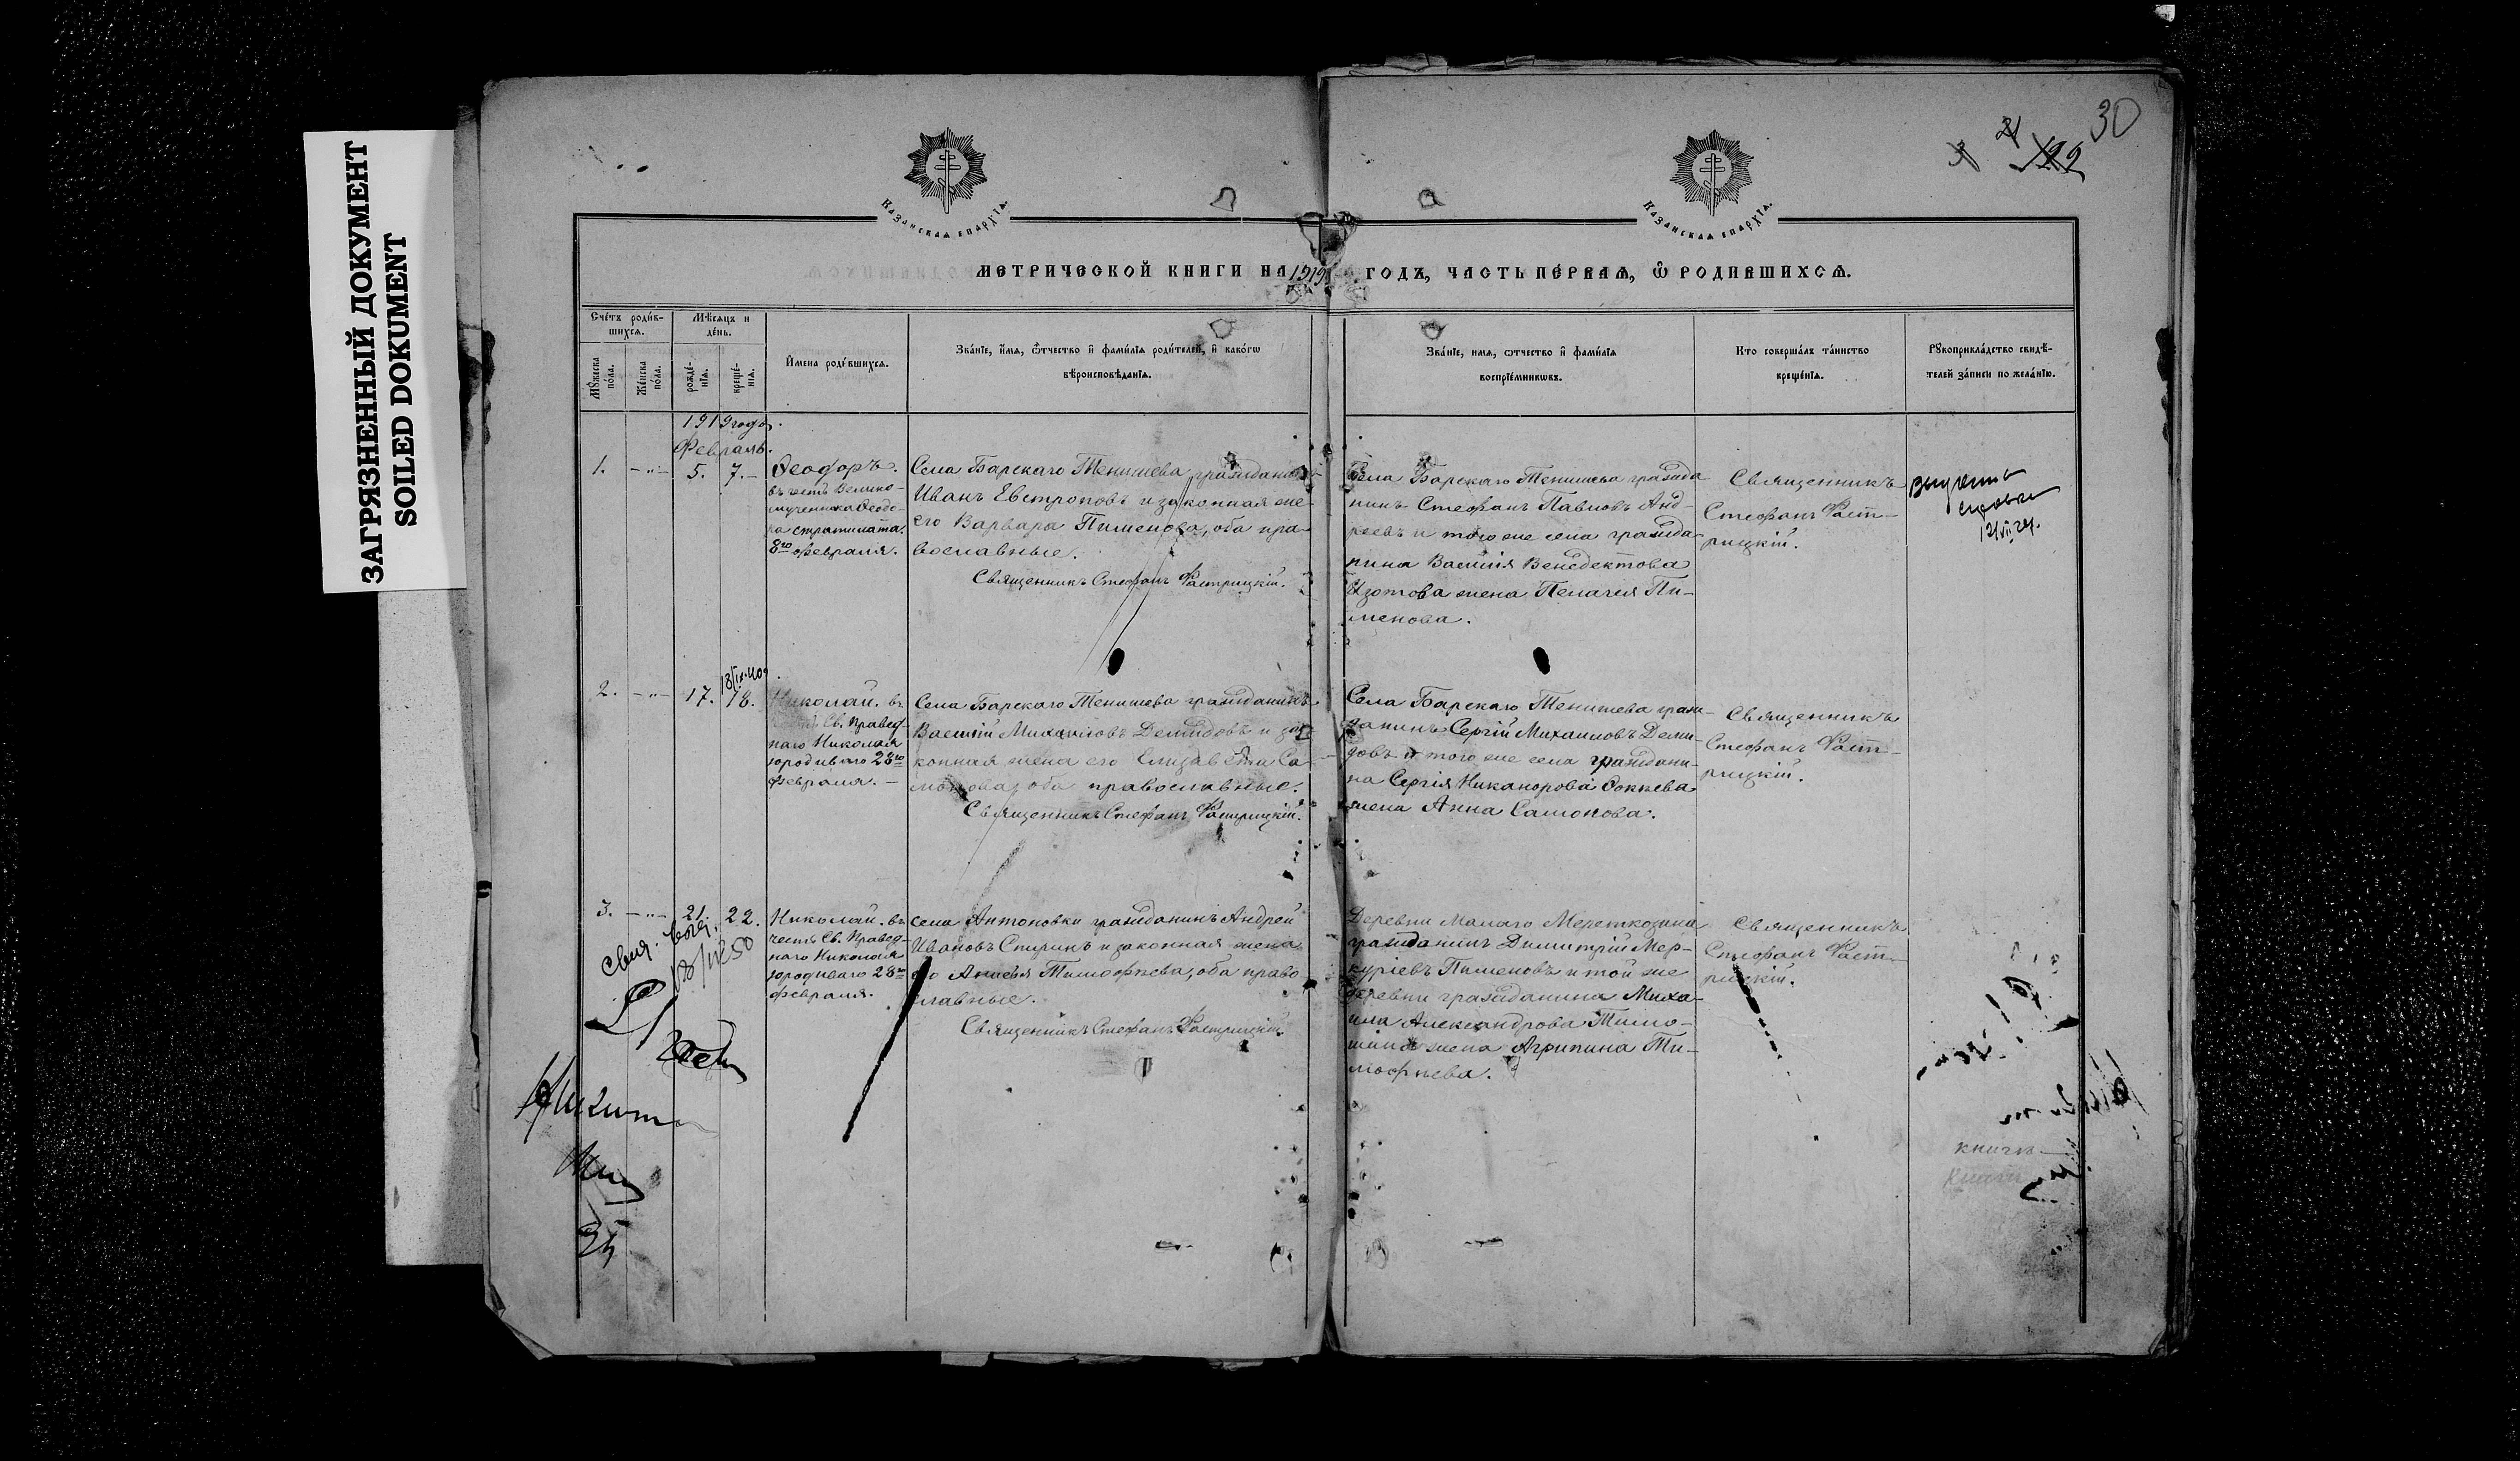 ЗАГРЯЗНЕННЫЙ ДОКУМЕНТ
SOILED DOKUMENT
30
Казанская епархїя.
Казанская епархїя.
МЕТРИЧЕСКОЙ КНИГИ НА 1919 ГОДЪ, ЧАСТЬ ПЕ́РВАЯ, Ѡ РОДИВШИХСѦ.
Сче́тъ роди́в-
шихсѧ.
Мѣ́сѧцъ и
де́нь.
Мꙋ́жеска
по́ла.
Же́нска
по́ла.
рожде́-
нїѧ.
креще́-
нїѧ.
И҆мена роди́вшихсѧ.
Зва́нїе, и҆́мѧ, ѻ҆́тчество и҆ фами́лїѧ роди́телей, и҆ како́гѡ
вѣроисповѣ́данїѧ.
Зва́нїе, имѧ, ѻтчество и҆ фами́лїѧ
воспрїе́мникѡвъ.
Кто соверша́лъ та́инство
креще́нїѧ.
Рꙋкоприкла́дство свидѣ́-
телей за́писи по жела́нїю.
1919 года.
Февраль.
1. -"- 5. 7.-
Ѳеодоръ.
въ честь Велико-
мученика Ѳеодо-
ра стратилата.
8го февраля.
Села Барскаго Тенишева гражданинъ
Иванъ Евстроповъ и законная же-
его Варвара Пименова, оба пра-
вославные.
Священникъ Стефанъ Фастрицкій.
Села Барскаго Тенишева гражда
нинъ Стефанъ Павловъ Анд-
реевъ и того же села гражда
нина Василія Венедектова
Изотова жена Пелагея Пи-
менова.
Священникъ
Стефанъ Фаст-
рицкій.
2. -"- 17. 18.
Николай. въ
честь Св. Правед
наго Николая
юродиваго 28го
февраля.-
Села Барскаго Тенишева гражданинъ
Василій Михаиловъ Демидовъ и зак
конная жена его Елизавета Са
монова, оба православные.
Священникъ Стефанъ Фастрицкій.
Села Барскаго Тенишева граж-
данинъ Сергій Михаиловъ Деми-
довъ и того же села граждани-
на Сергія Никанорова Фокеева
жена Анна Самонова.
Священникъ
Стефанъ Фаст-
рицкій.
3. -"- 21. 22.
Николай. въ
честь Св. Правед-
наго Николая
юродиваго 28го
февраля.
села Антоновки гражданинъ Андрей
Ивановъ Спиринъ и законная жена
его Анисья Тимофѣева, оба право
славные.
Священникъ Стефанъ Фастрицкій.
Деревни Малаго Мереткозина
гражданинъ Димитрій Мер-
куріевъ Пименовъ и той же
деревни гражданина Миха-
ила Александрова Тимо-
шина жена Агрипина Ти-
мофѣева.
Священникъ
Стефанъ Фаст-
рицкій.
книга